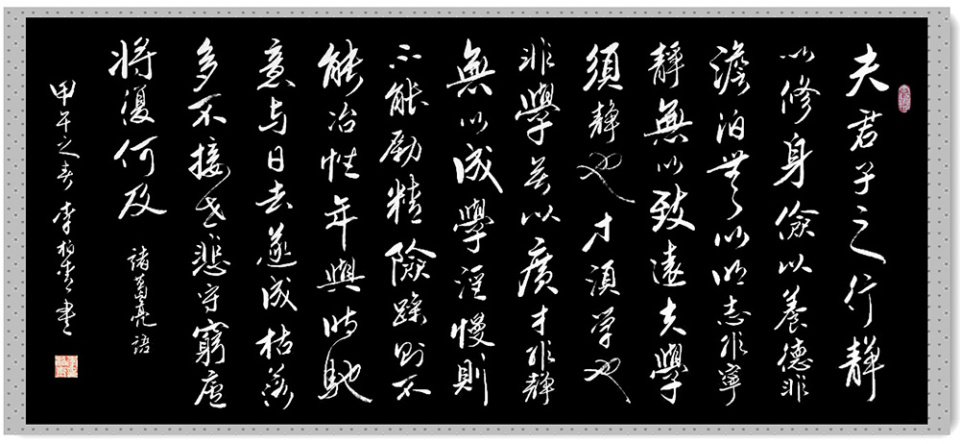 夫君子之行靜
以修身儉以養德非
澹泊無以明志非寧
靜無以致遠夫學
須靜也才須学也
非學無以廣才非靜
無以成學淫慢則
不能勵精險躁則不
能冶性年與時馳
意与日去遂成枯落
多不接世悲守窮廬
將復何及
諸葛亮語
甲午之春李柏青書